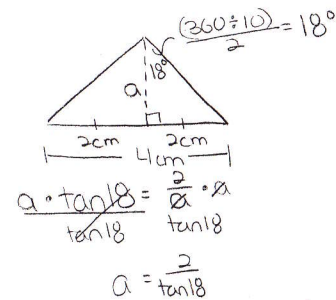 (360÷10)/2 = 18°
18°
a
2cm 2cm
4cm
a · tan18 = 2/a · a
tan18 tan18
a = 2/tan18